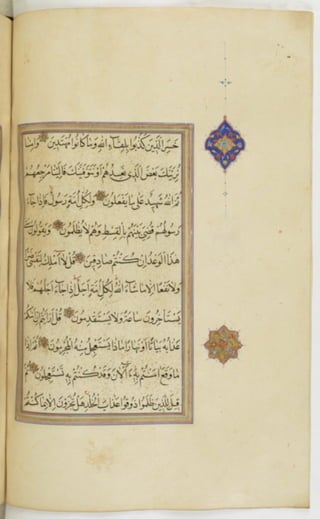 خَسِرَ الَّذِينَ كَذَّبُوا بِلِقَاءِ اللَّهِ وَمَا كَانُوا مُهْتَدِينَ وَإِمَّا
نُرِيَنَّكَ بَعْضَ الَّذِي نَعِدُهُمْ أَوْ نَتَوَفَّيَنَّكَ فَإِلَيْنَا مَرْجِعُهُمْ
ثُمَّ اللَّهُ شَهِيدٌ عَلَى مَا يَفْعَلُونَ وَلِكُلِّ أُمَّةٍ رَسُولٌ فَإِذَا جَاءَ
رَسُولُهُمْ قُضِيَ بَيْنَهُمْ بِالْقِسْطِ وَهُمْ لَا يُظْلَمُونَ وَيَقُولُونَ مَتَى
هَذَا الْوَعْدُ إِنْ كُنْتُمْ صَادِقِينَ قُلْ لَا أَمْلِكُ لِنَفْسِي ضَرًّا
وَلَا نَفْعًا إِلَّا مَا شَاءَ اللَّهُ لِكُلِّ أُمَّةٍ أَجَلٌ إِذَا جَاءَ أَجَلُهُمْ فَلَا
يَسْتَأْخِرُونَ سَاعَةً وَلَا يَسْتَقْدِمُونَ قُلْ أَرَأَيْتُمْ إِنْ أَتَاكُمْ
عَذَابُهُ بَيَاتًا أَوْ نَهَارًا مَاذَا يَسْتَعْجِلُ مِنْهُ الْمُجْرِمُونَ أَثُمَّ إِذَا
مَا وَقَعَ آمَنْتُمْ بِهِ آلْآنَ وَقَدْ كُنْتُمْ بِهِ تَسْتَعْجِلُونَ ثُمَّ
قِيلَ لِلَّذِينَ ظَلَمُوا ذُوقُوا عَذَابَ الْخُلْدِ هَلْ تُجْزَوْنَ إِلَّا بِمَا كُنْتُمْ